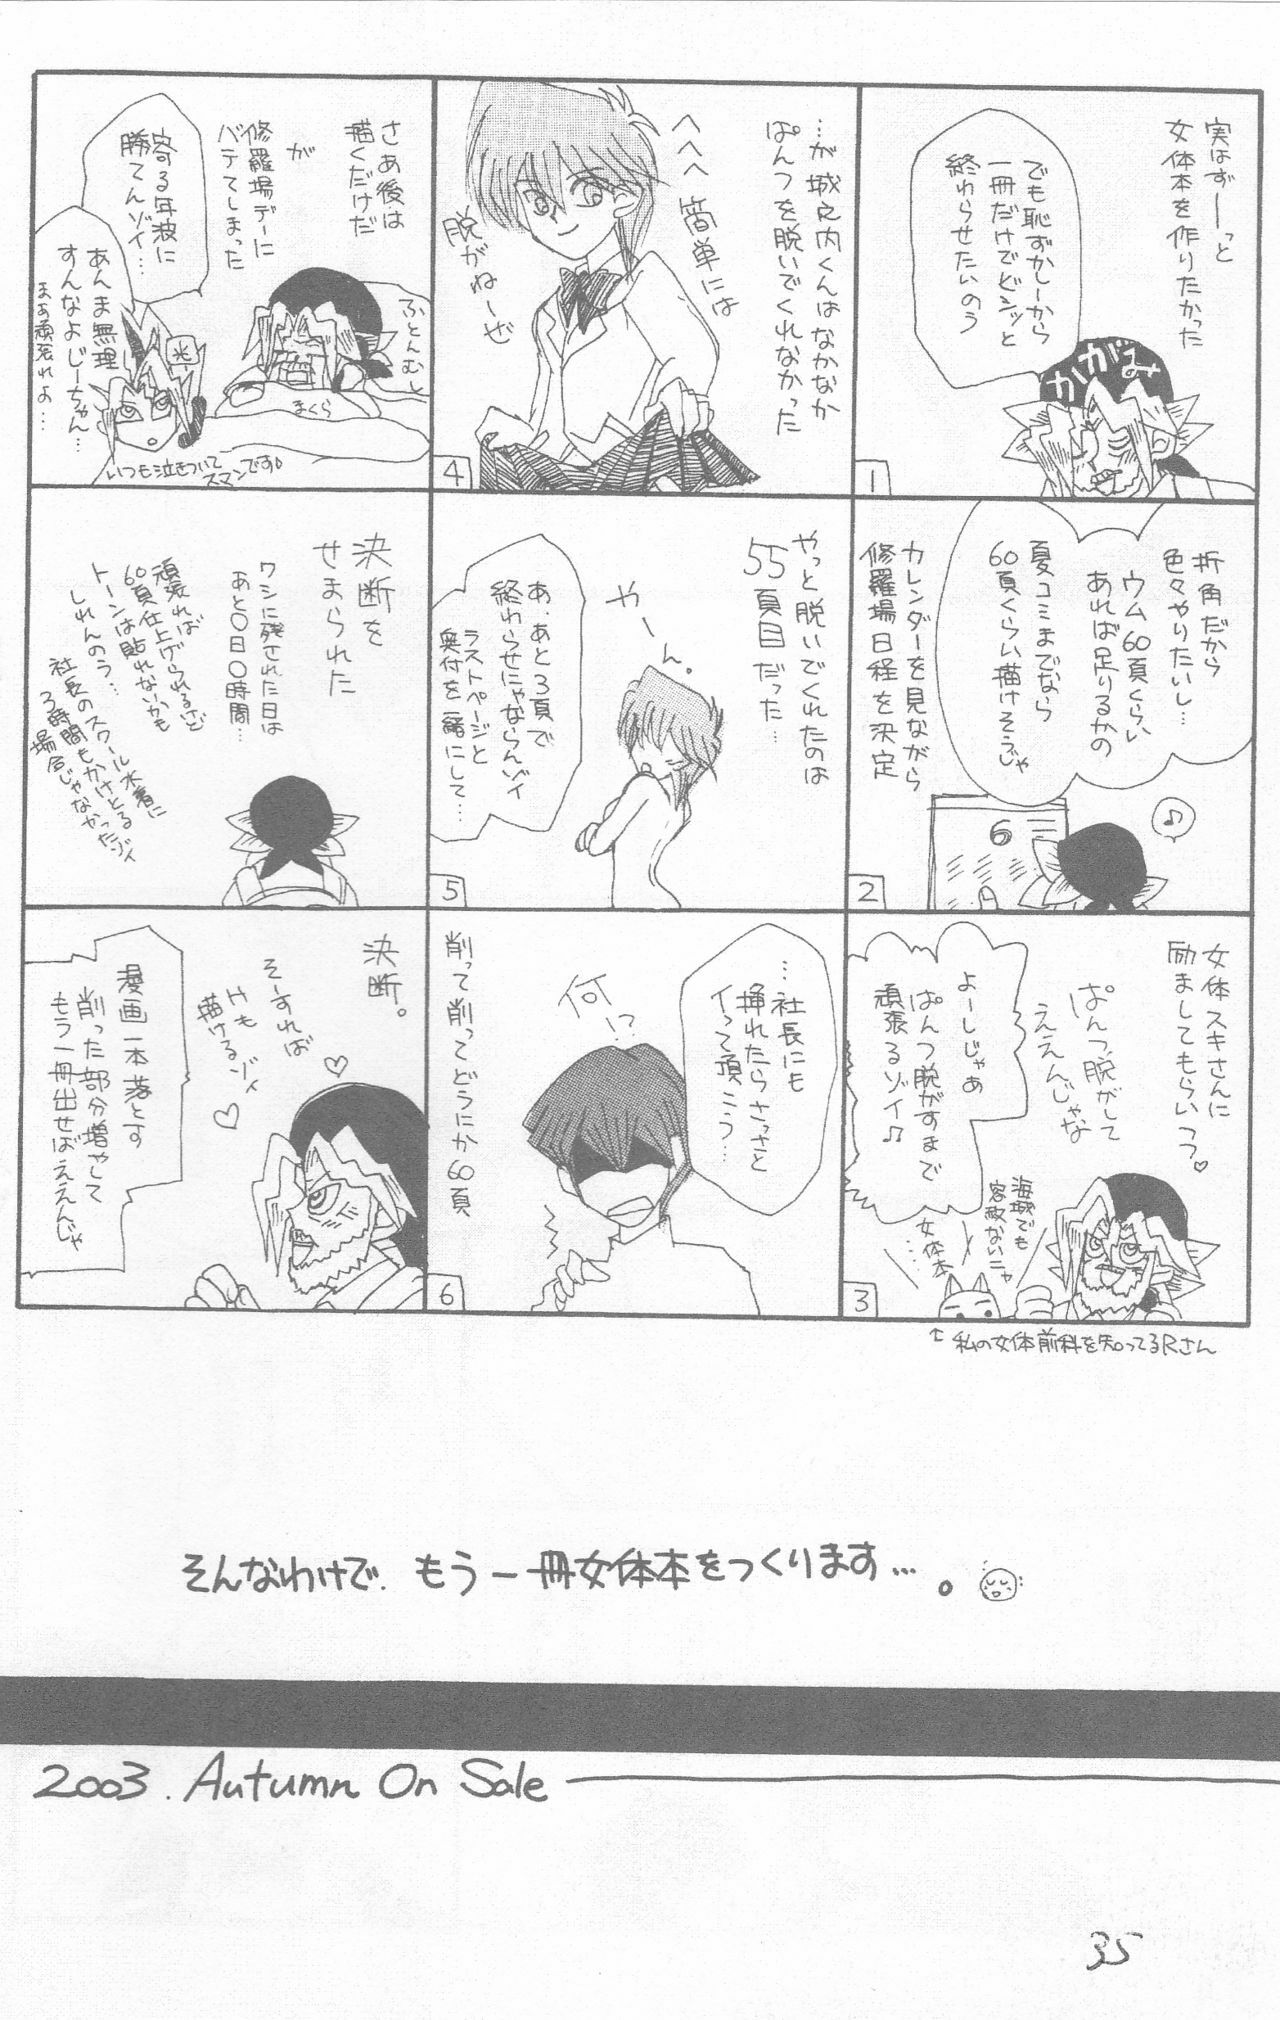 実はずーっと
女体本を作りたかった
でも恥ずかしーから
一冊だけでビシッと
終わらせたいのう
かがみ
1
折角だから
色々やりたいし…
ウム60頁くらい
あれば足りるかの
夏コミまでなら
60頁くらい描けそうじゃ
カレンダーを見ながら
修羅場日程を決定
♪
6
2
女体スキさんに
励ましてもらいつつ♡
ぱんつ脱がして
ええんじゃな
よーしじゃあ
ぱんつ脱がすまで
頑張るゾイ♪
海城でも
容赦ないニャ
女体本
……
3
←私の女体前科を知ってるRさん
…が城之内くんはなかなか
ぱんつを脱いでくれなかった
へへへ 簡単には
脱がねーぜ
4
やっと脱いでくれたのは
55頁目だった…
やーん。
あ、あと3頁で
終わらせにゃならんゾイ
ラストページと
奥付を一緒にして…
5
…社長にも
挿れたらさっさと
イって頂こう…
何!?
削って削ってどうにか60頁
6
さあ後は
描くだけだ
が
修羅場デーに
バテてしまった
寄る年波に
勝てんゾイ…
あんま無理
すんなよじーちゃん…
まぁ頑張れよ…
ふとんむし
まくら
いつも泣きついて
スマンです。
決断を
せまられた
ワシに残された日は
あと〇日〇時間…
頑張れば
60頁仕上げられるけど
トーンは貼れないかも
しれんのう…
社長のスクール水着に
3時間もかけとる
場合じゃなかったゾイ
決断。
そーすれば
Hも
描けるゾイ
♡
♡
漫画一本落とす
削った部分増やして
もう一冊出せばええんじゃ
そんなわけで、もう一冊女体本をつくります…。
2003. Autumn On Sale
35